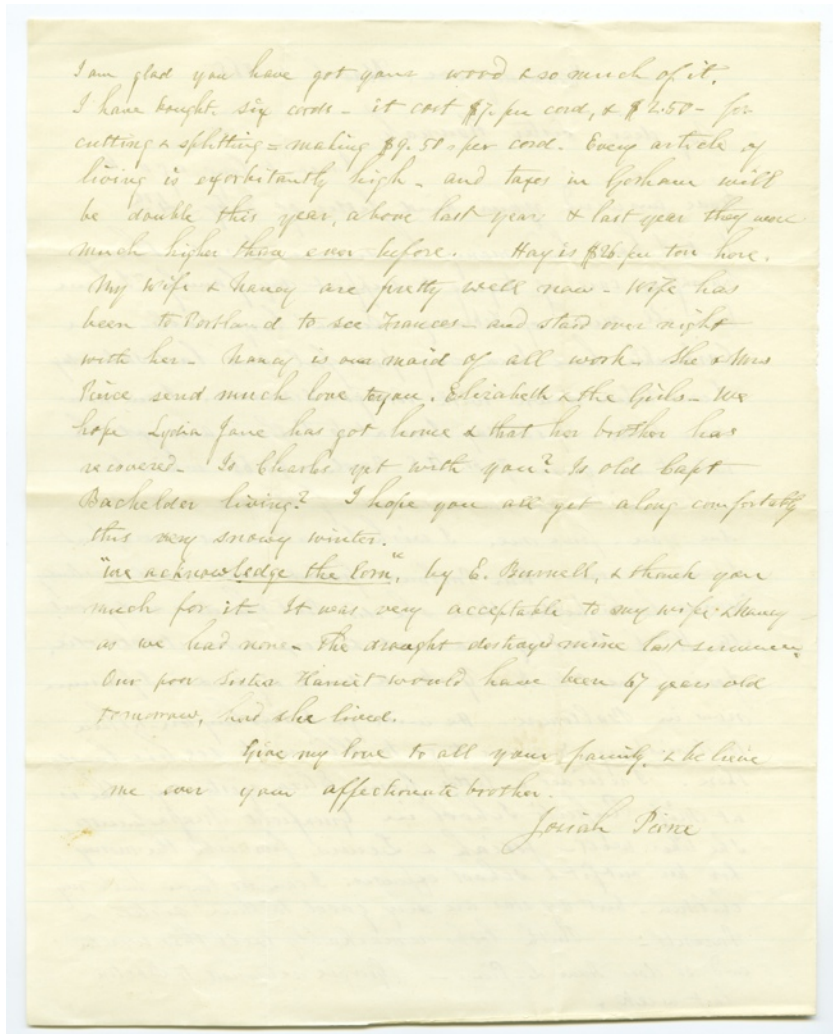 I am glad you have got your wood & so much of it.
I have bought six cords - it cost $7. per cord, & $2.50 - for
cutting & splitting = making $9.50 per cord. Every article of
living is exorbitantly high - and taxes in Gorham will
be double this year, above last year & last year they were
much higher than ever before. Hay is $26. per ton here.
My wife & Nancy are pretty well now - Wife has
been to Portland to see Frances - and staid over night
with her - Nancy is our maid of all work - She & Mrs
Pierce send much love to you, Elizabeth & the Girls - We
hope Lydia Jane has got home & that her brother has
recovered - Is Charles yet with you? Is old Capt
Bachelder living? I hope you all get along comfortably
this very snowy winter.
"We acknowledge the Corn", by E. Burnell, & thank you
much for it - It was very acceptable to my wife & Nancy
as we had none - The drought destroyed mine last summer.
Our poor Sister Harriet would have been 67 years old
tomorrow, had she lived.
Give my love to all your family, & believe
me ever your affectionate brother.
Josiah Pierce